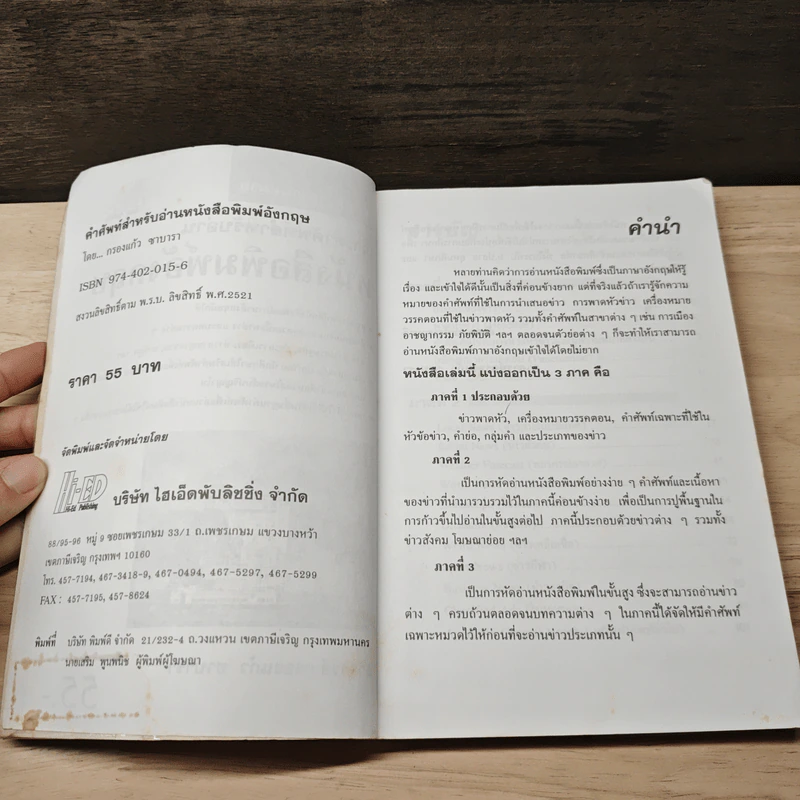 คำศัพท์สำหรับอ่านหนังสือพิมพ์อังกฤษ
โดย... กรองแก้ว ซาบารา
ISBN 974-402-015-6
สงวนลิขสิทธิ์ตาม พ.ร.บ. ลิขสิทธิ์ พ.ศ.2521
ราคา 55 บาท
จัดพิมพ์และจัดจำหน่ายโดย
Hi-ED
Hi-Ed Publishing
บริษัท ไฮเอ็ดพับลิชชิ่ง จำกัด
88/95-96 หมู่ 9 ซอยเพชรเกษม 33/1 ถ.เพชรเกษม แขวงบางหว้า
เขตภาษีเจริญ กรุงเทพฯ 10160
โทร. 457-7194, 467-3418-9, 467-0494, 467-5297, 467-5299
FAX : 457-7195, 457-8624
พิมพ์ที่ บริษัท พิมพ์ดี จำกัด 21/232-4 ถ.วงแหวน เขตภาษีเจริญ กรุงเทพมหานคร
นายเสริม พูนพนิช ผู้พิมพ์ผู้โฆษณา
คำนำ
หลายท่านคิดว่าการอ่านหนังสือพิมพ์ซึ่งเป็นภาษาอังกฤษให้รู้
เรื่อง และเข้าใจได้ดีนั้นเป็นสิ่งที่ค่อนข้างยาก แต่ที่จริงแล้วถ้าเรารู้จักความ
หมายของคำศัพท์ที่ใช้ในการนำเสนอข่าว การพาดหัวข่าว เครื่องหมาย
วรรคตอนที่ใช้ในข่าวพาดหัว รวมทั้งคำศัพท์ในสาขาต่าง ๆ เช่น การเมือง
อาชญากรรม ภัยพิบัติ ฯลฯ ตลอดจนตัวย่อต่าง ๆ ก็จะทำให้เราสามารถ
อ่านหนังสือพิมพ์ภาษาอังกฤษเข้าใจได้โดยไม่ยาก
หนังสือเล่มนี้ แบ่งออกเป็น 3 ภาค คือ
ภาคที่ 1 ประกอบด้วย
ข่าวพาดหัว, เครื่องหมายวรรคตอน, คำศัพท์เฉพาะที่ใช้ใน
หัวข้อข่าว, คำย่อ, กลุ่มคำ และประเภทของข่าว
ภาคที่ 2
เป็นการหัดอ่านหนังสือพิมพ์อย่างง่าย ๆ คำศัพท์และเนื้อหา
ของข่าวที่นำมารวบรวมไว้ในภาคนี้ค่อนข้างง่าย เพื่อเป็นการปูพื้นฐานใน
การก้าวขึ้นไปอ่านในขั้นสูงต่อไป ภาคนี้ประกอบด้วยข่าวต่าง ๆ รวมทั้ง
ข่าวสังคม โฆษณาย่อย ฯลฯ
ภาคที่ 3
เป็นการหัดอ่านหนังสือพิมพ์ในขั้นสูง ซึ่งจะสามารถอ่านข่าว
ต่าง ๆ ครบถ้วนตลอดจนบทความต่าง ๆ ในภาคนี้ได้จัดให้มีคำศัพท์
เฉพาะหมวดไว้ให้ก่อนที่จะอ่านข่าวประเภทนั้น ๆ